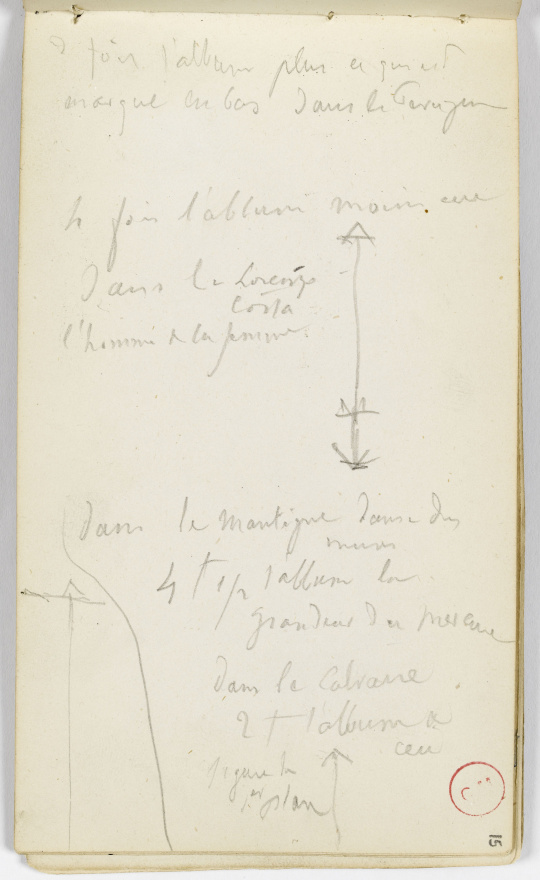 2 fois l'album plus ce qui est
marqué en bas dans le Perugin
4 fois l'album moins ceci
dans le Lorenzo
Costa
l'homme & la femme.
dans le Mantigne danse des
muses
4 f 1/2 l'album la
grandeur du Mercure
dans le Calvaire
2 f l'album &
ceci
figure le
1er plan
15